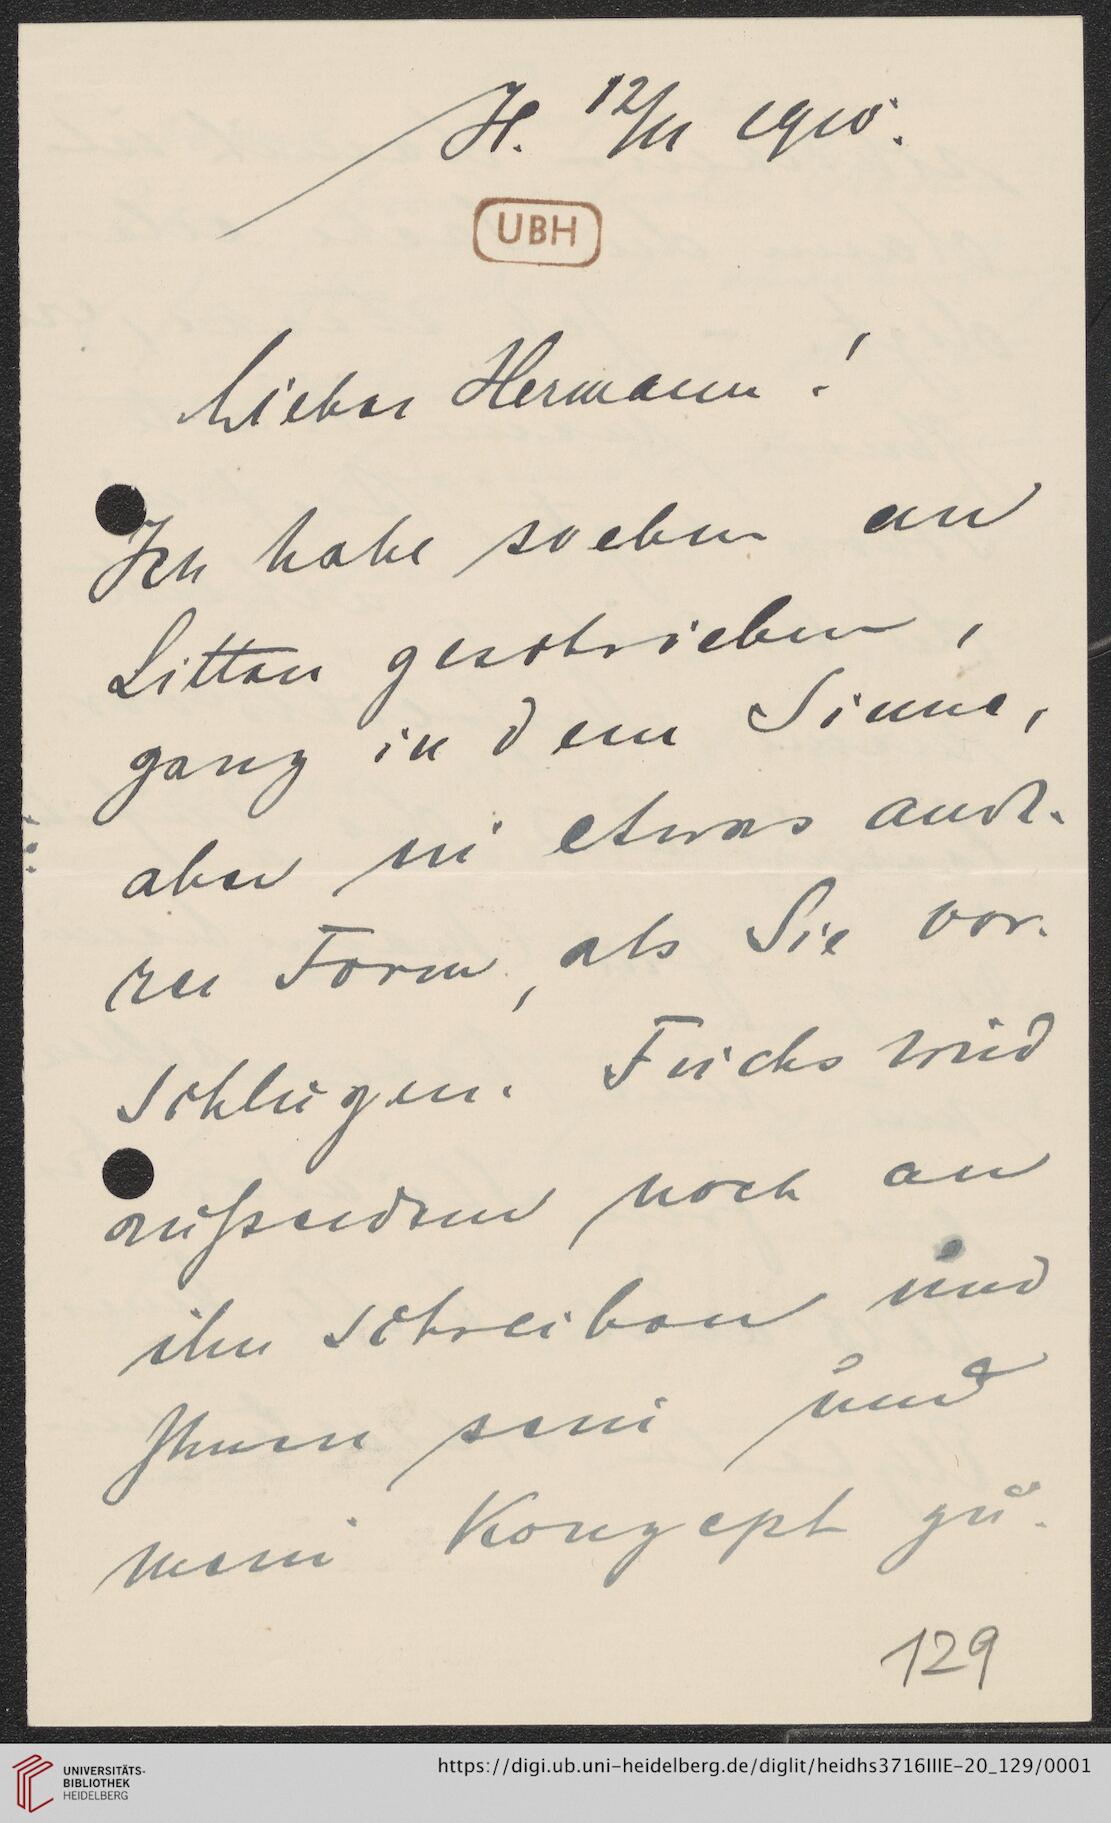 H. 12/11 1910.
UBH
Lieber Hermann!
Ich habe soeben an
Litten geschrieben,
ganz in dem Sinne,
aber in etwas ande-
rer Form, als Sie vor-
schlugen. Fuchs wird
außerdem noch an
ihn schreiben und
Ihnen sein und
mein Konzept zu-
129
UNIVERSITÄTS-
BIBLIOTHEK
HEIDELBERG
https://digi.ub.uni-heidelberg.de/diglit/heidhs3716IIIE-20_129/0001